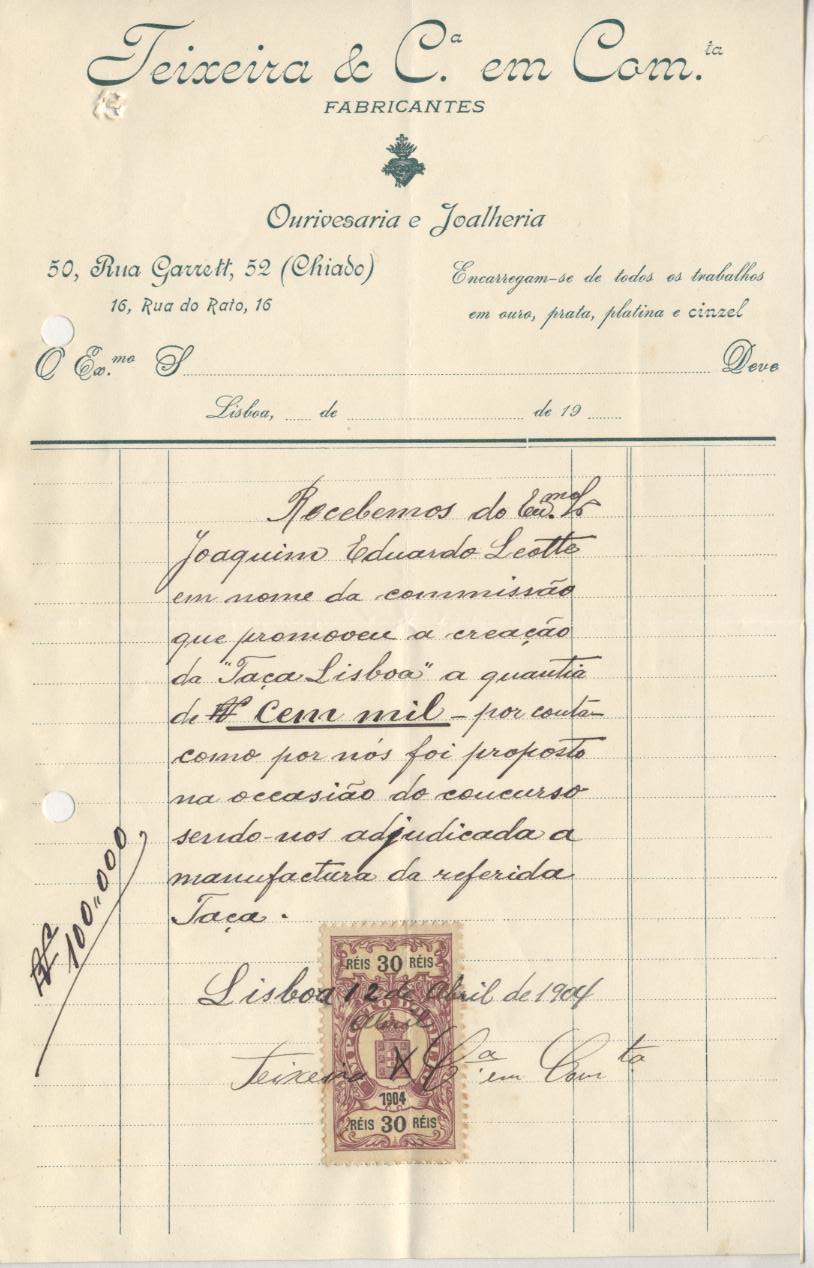 Teixeira & C.ª em Com.ta
FABRICANTES
Ourivesaria e Joalheria
50, Rua Garrett, 52 (Chiado)
16, Rua do Rato, 16
Encarregam-se de todos os trabalhos
em ouro, prata, platina e cinzel
O Ex.mo S
Deve
Lisboa, de de 19
Recebemos do Exmo. Sr
Joaquim Eduardo Leotte
em nome da commissão
que promoveu a creação
da "Taça Lisboa" a quantia
de Rs Cem mil - por conta
como por nós foi proposto
na occasião do concurso
sendo-nos adjudicada a
manufactura da referida
Taça.
Rs 100.000
RÉIS 30 RÉIS
Lisboa 12 de Abril de 1904
Abril
Teixeira & Cª em Comta
1904
RÉIS 30 RÉIS